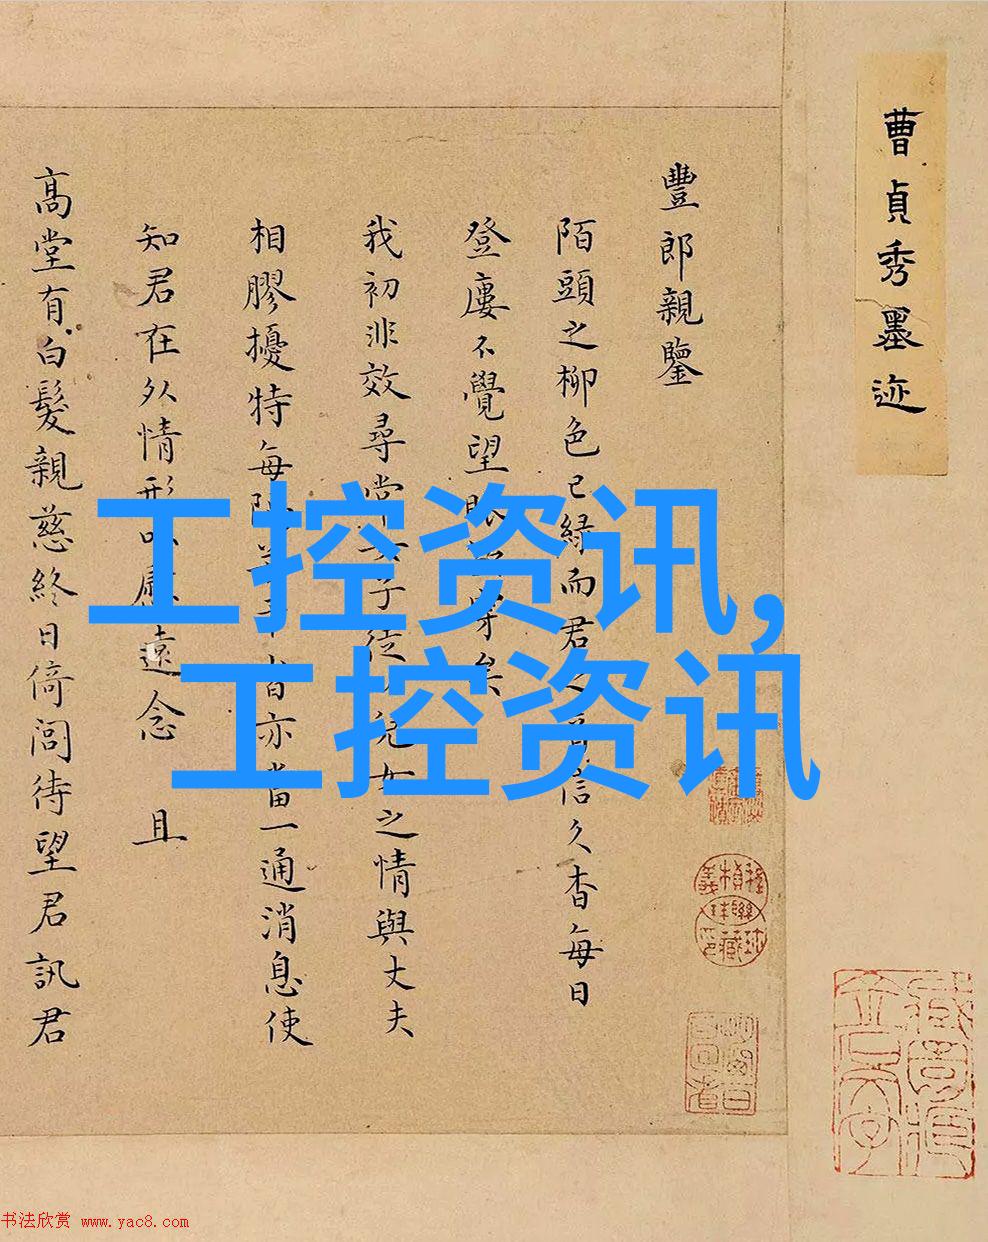 曹貞秀墨迹
豐郎親鑒
陌頭之柳色已緑而君之音信久杳每日
登廔不覺望眼穿矣
我初非效尋常女子徒兒女之情與丈夫
相膠擾特每隔半亦當一通消息使
知君在外情形以慰遠念 且
高堂有白髮親慈終日倚閭待望君訊君
工控资讯,
工控资讯
书法欣赏 www.yac8.com